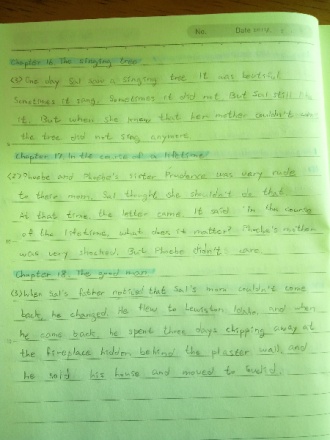 No.
Date
Chapter 16 The singing tree
(3) One day Sal saw a singing tree It was beatiful
Sometimes it sing, Sometimes it did not But Sal still like
it. But when she knew that her mother couldn't
the tree did not sing anymore
Chapter 17, In the course of a lifetime
(2) Phoebe and Phoebe's sister Prudence was very rude
to there mom, Sal thought she shouldn't do that
At that time the letter came. It said "In the course
of the lifetime what does it matter? Phoebe's mother
was very shocked. But Phoebe didn't care
Chapter 18, The good man
(3) When Sal's father noticed that Sal's mom couldn't come
back, he changed. He flew to Lewiston, Idaho, and when
he came back, he spent three days chipping away at
the fireplace hidden behind the plaster wall, and
he sold his house and moved to Euclid.